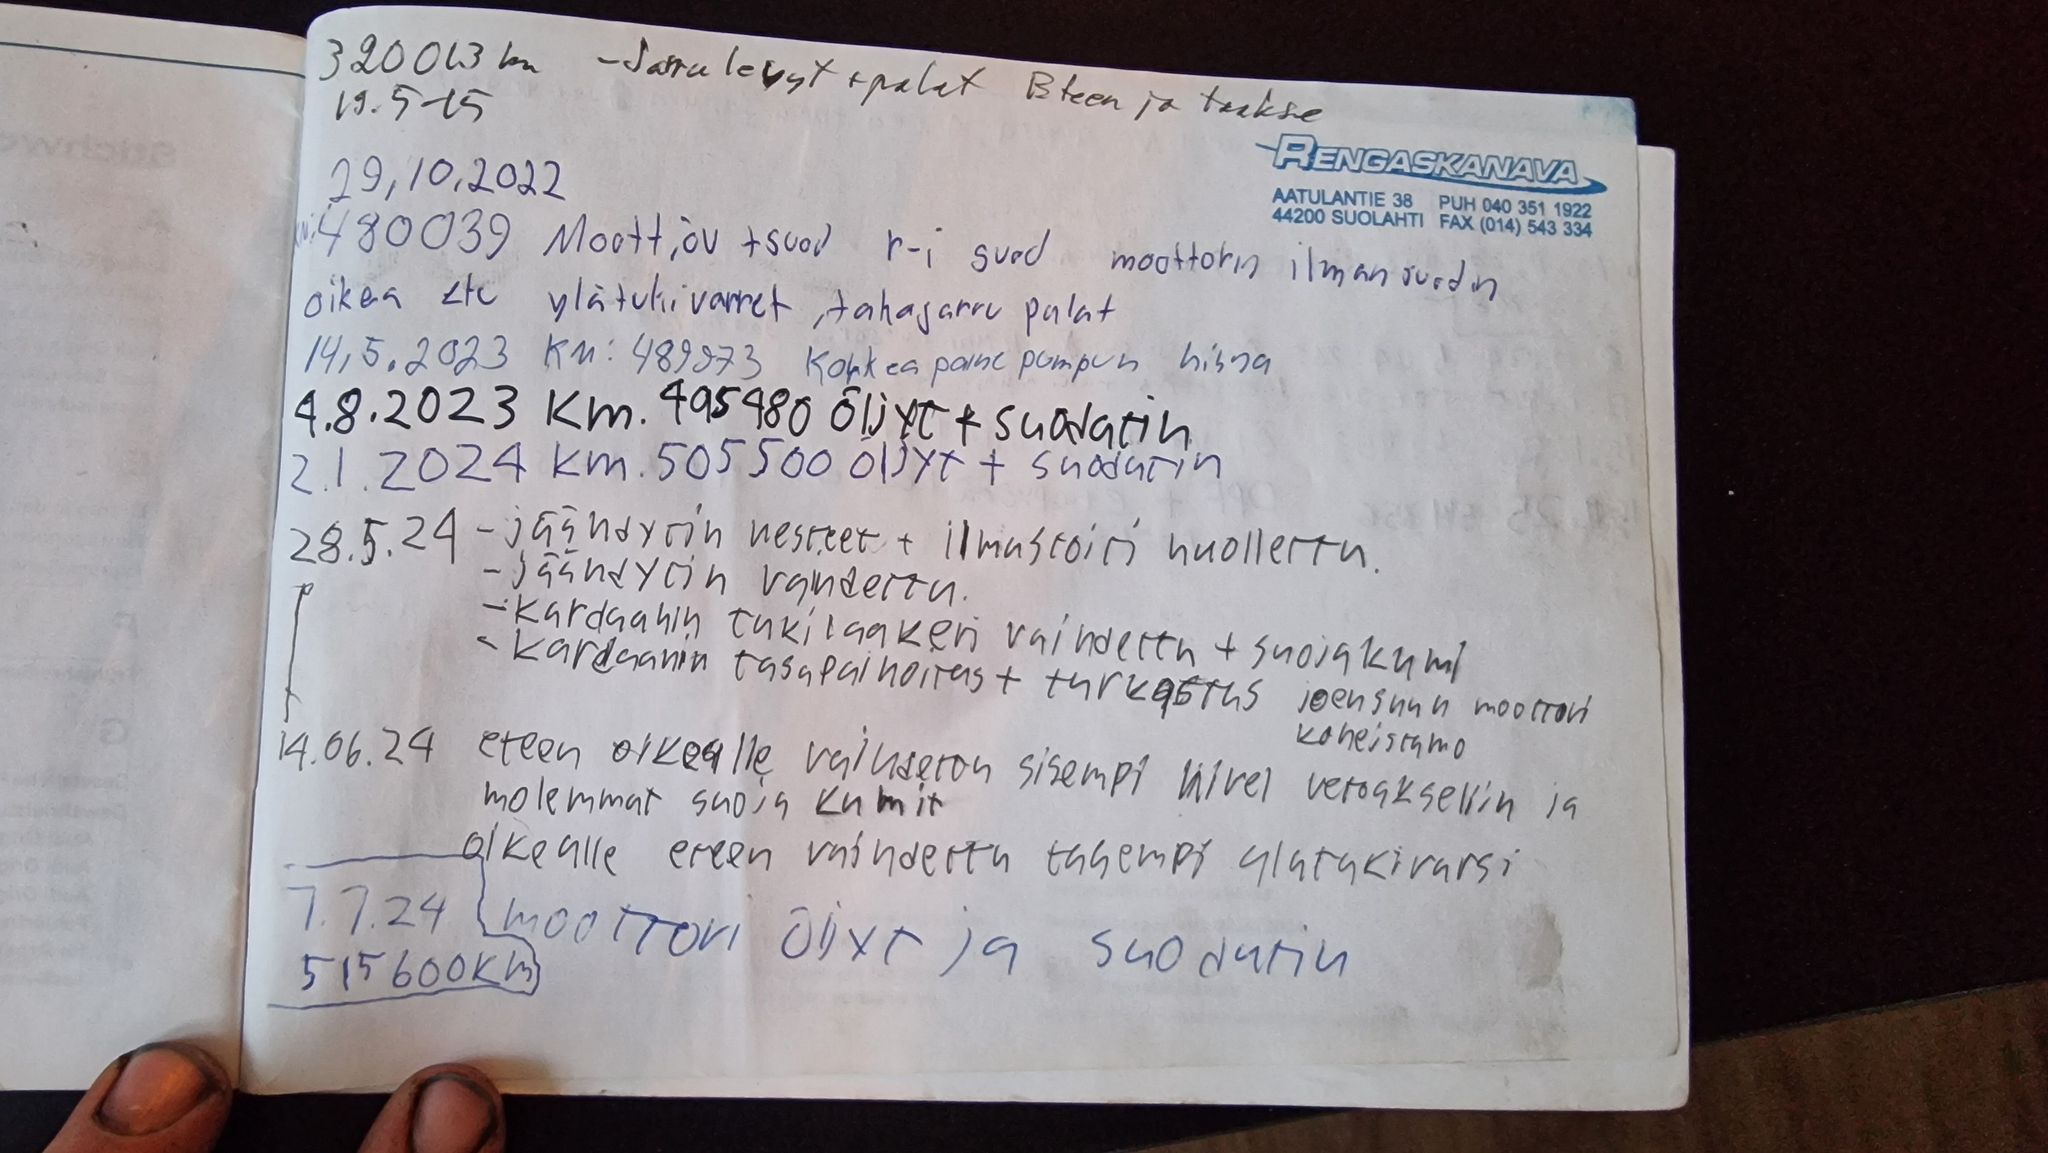 320013 km - Jarrulevyt + palat Eteen ja taakse
19.5-15
RENGASKANAVA
AATULANTIE 38 PUH 040 351 1922
44200 SUOLAHTI FAX (014) 543 334
29,10.2022
KM: 480039 Moott,öv + suod r-i suod moottorin ilmansuodin
oikea etu ylätukivarret, takajarru palat
14,5.2023 KM: 489973 Korkeapaine pumpun hisna
4.8.2023 Km. 495480 Öljyt + suodatin
2.1.2024 km. 505500 öljyt + suodatin
28.5.24 - jäähdytin nesteet + ilmastointi huollettu.
- jäähdytin vaihdettu.
- kardaanin tukilaakeri vaihdettu + suojakumi
- kardaanin tasapainoitus + tarkastus joensuun moottori
koneistamo
14.06.24 eteen oikealle vaihdettu sisempi nivel vetoakseliin ja
molemmat suoja kumit
oikealle eteen vaihdettu taaempi ylätukivarsi
7.7.24 moottori öljyt ja suodatin
515600km